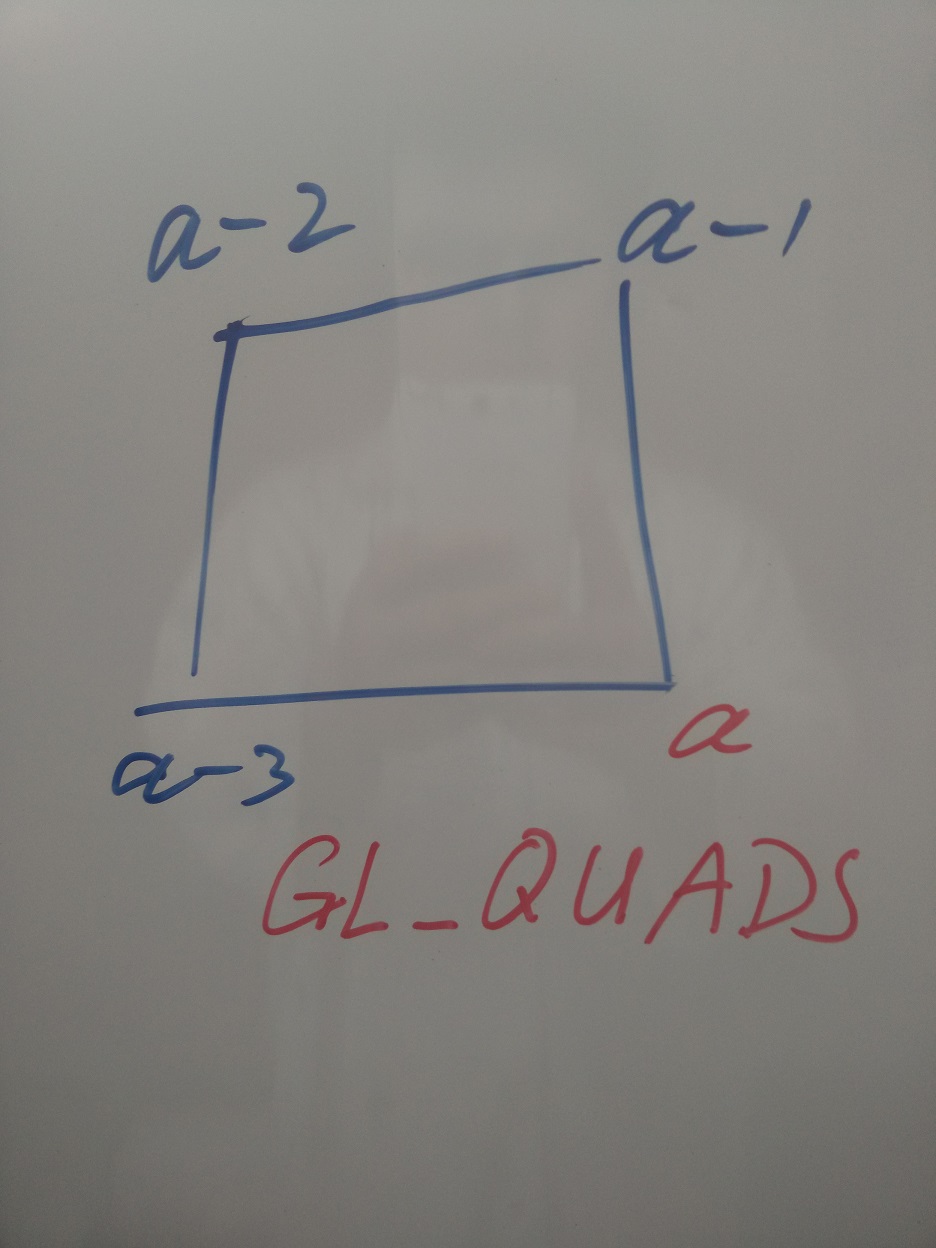 a-2 a-1
a-3 a
GL_QUADS